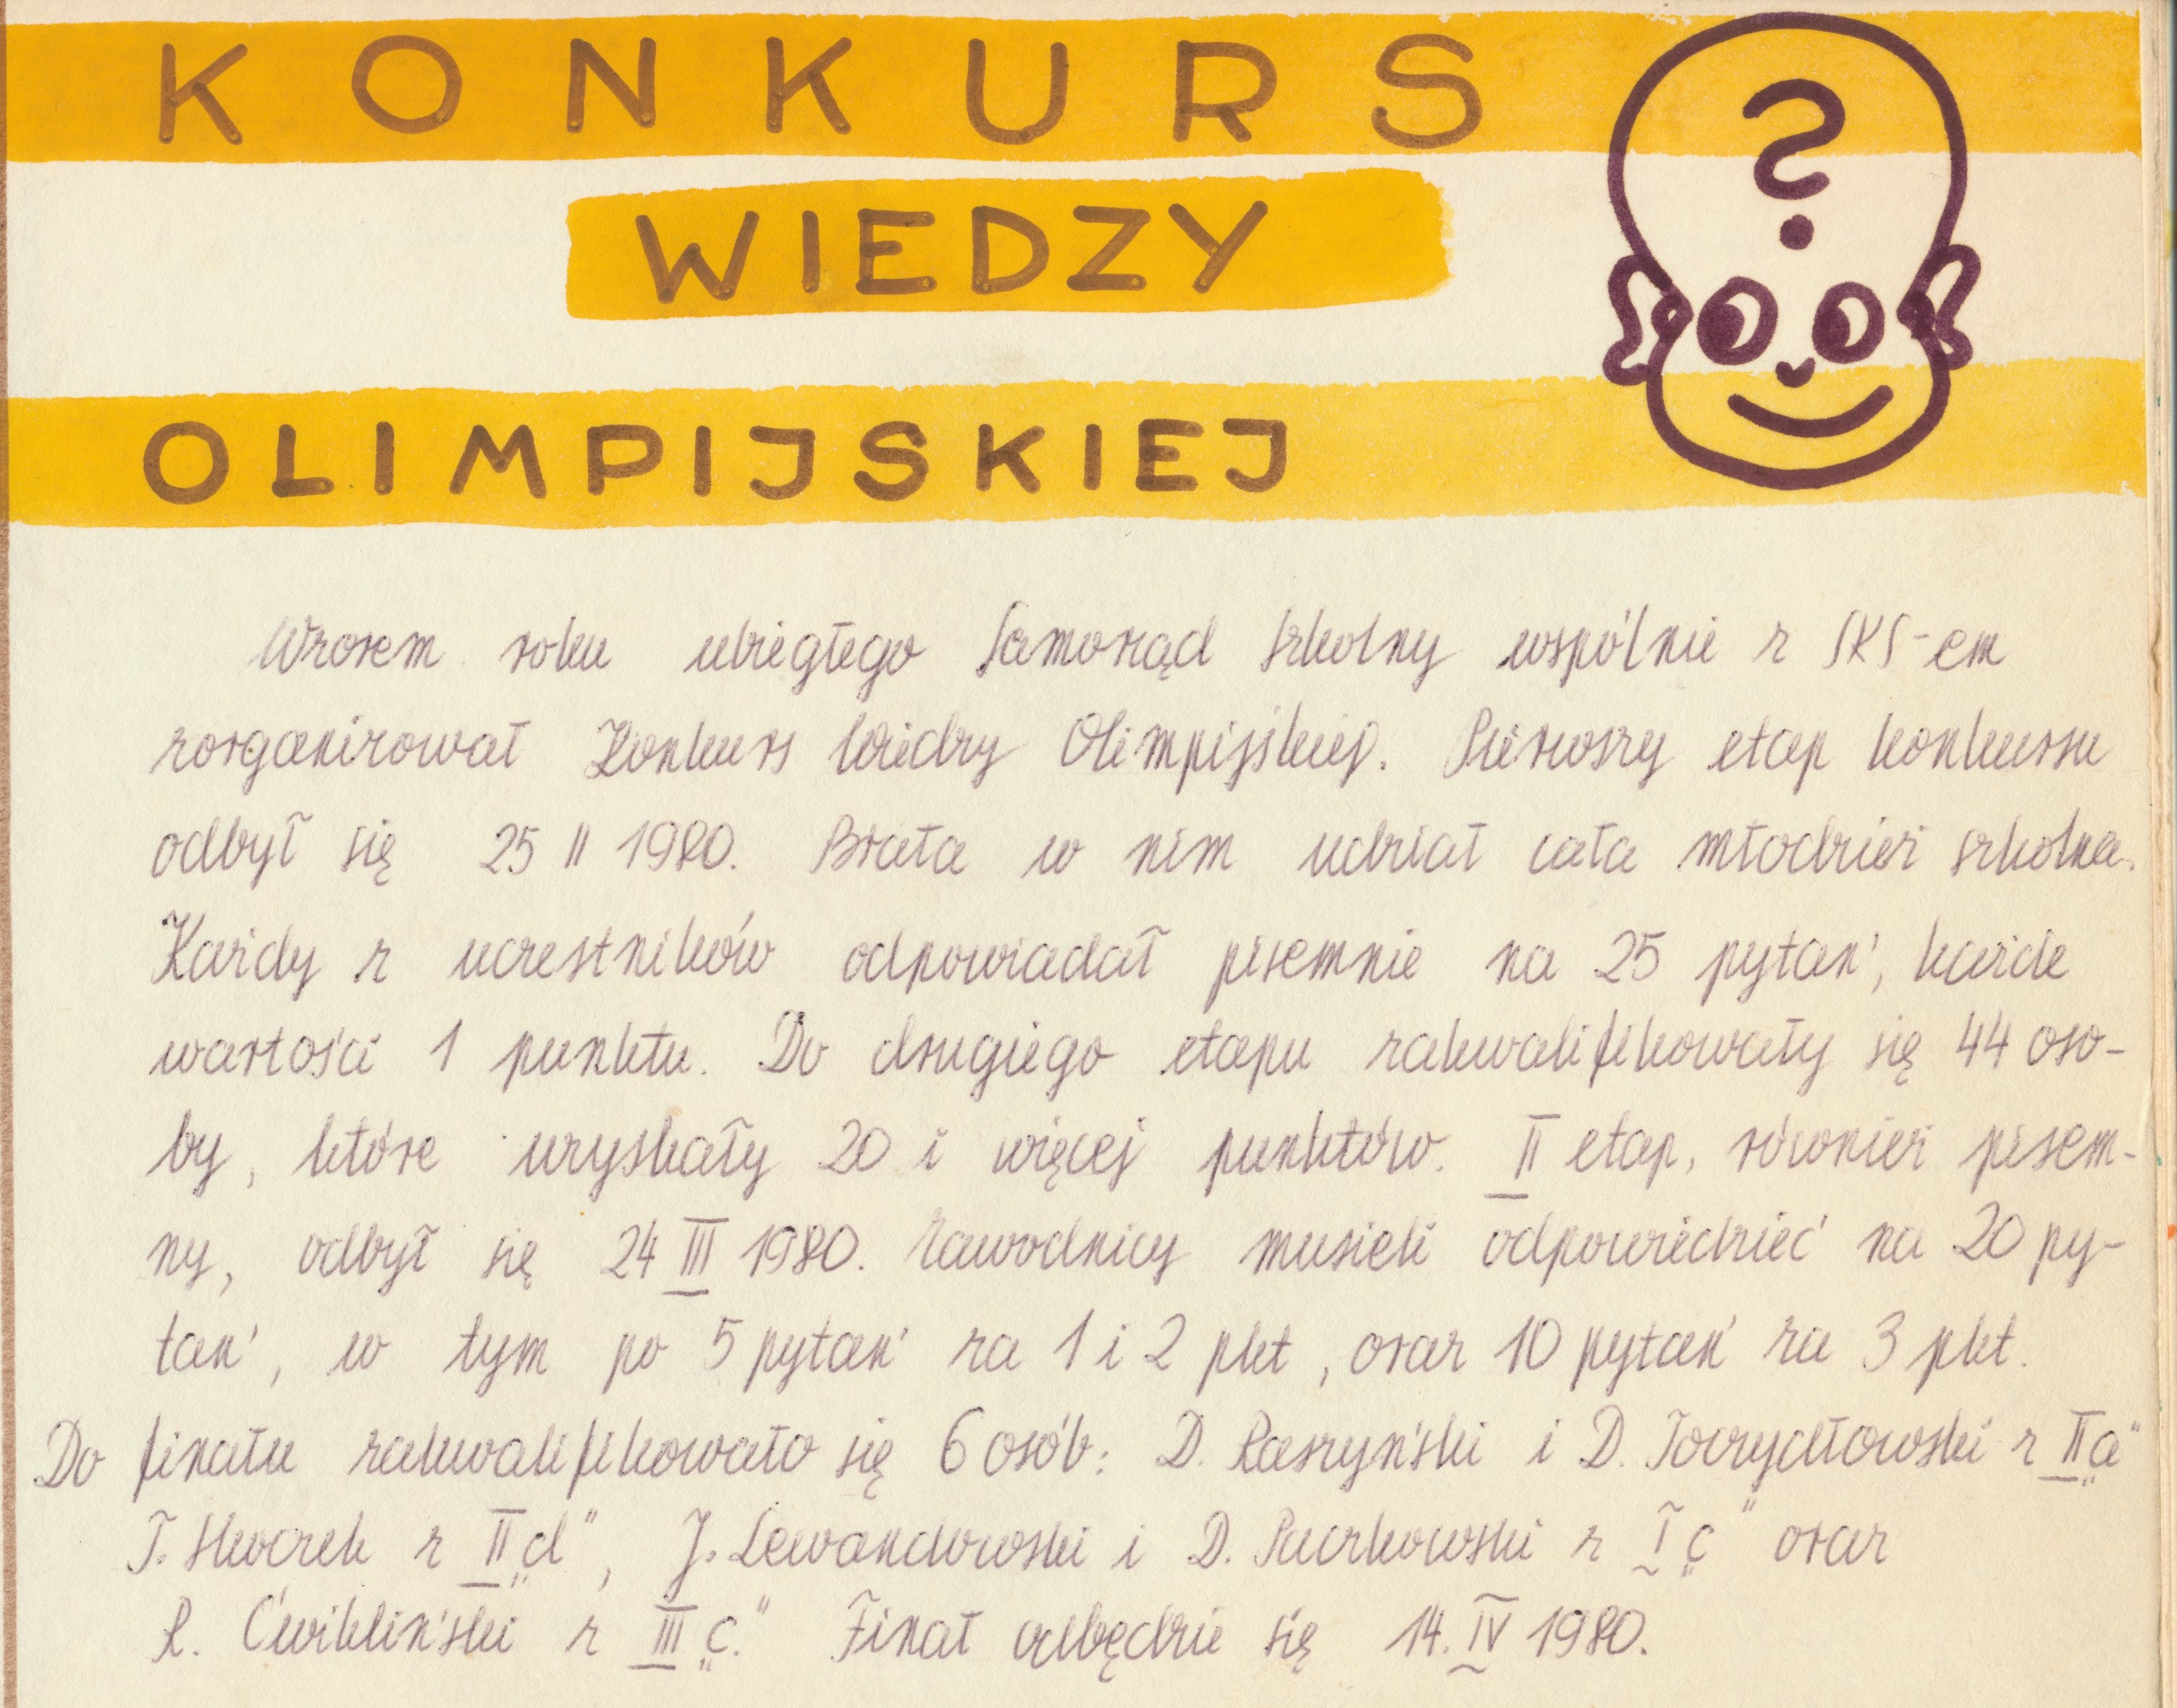 KONKURS
?
WIEDZY
OLIMPIJSKIEJ
Wzorem roku ubiegłego Samorząd Szkolny wspólnie z SKS-em
zorganizował Konkurs Wiedzy Olimpijskiej. Pierwszy etap konkursu
odbył się 25 II 1980. Brała w nim udział cała młodzież szkolna.
Każdy z uczestników odpowiadał pisemnie na 25 pytań, każde
wartości 1 punktu. Do drugiego etapu zakwalifikowały się 44 oso-
by, które uzyskały 20 i więcej punktów. II etap, również pisem-
ny, odbył się 24 III 1980. Zawodnicy musieli odpowiedzieć na 20 py-
tań, w tym po 5 pytań za 1 i 2 pkt, oraz 10 pytań za 3 pkt.
Do finału zakwalifikowało się 6 osób: D. Raszyński i D. z II „a"
T. Skoczek z II „d", J. Lewandowski i D. Paczkowski z I „c" oraz
R. Ćwikliński z III „c." Finał odbędzie się 14. IV 1980.